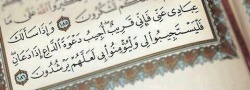 وَإِذَا سَأَلَكَ
عِبَادِي عَنِّي فَإِنِّي قَرِيبٌ أُجِيبُ دَعْوَةَ الدَّاعِ إِذَا دَعَانِ
فَلْيَسْتَجِيبُوا لِي وَلْيُؤْمِنُوا بِي لَعَلَّهُمْ يَرْشُدُونَ